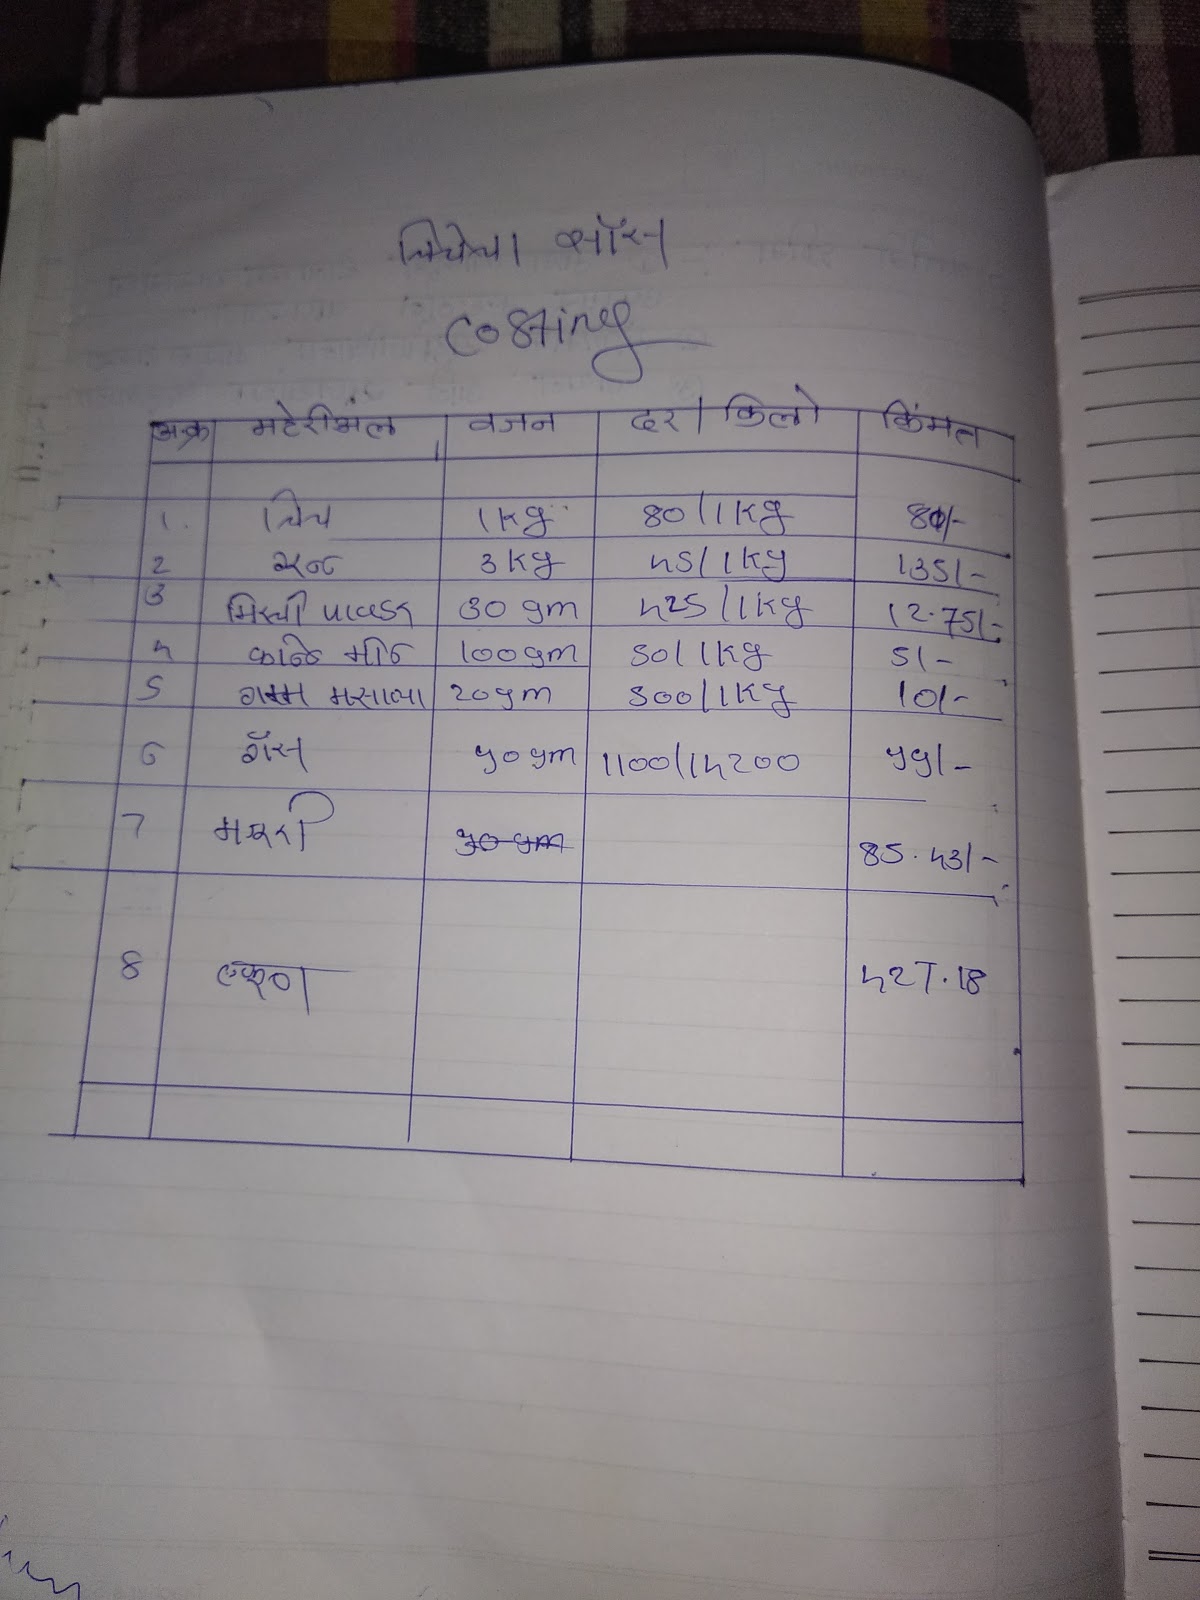 चिंचेचा सॉस
Costing
अ.क्र मटेरीअल वजन दर/किलो किंमत
1. चिंच 1kg 80/1kg 80/-
2 3kg 45/1kg 135/-
3 मिरची पावडर 30 gm 425/1kg 12.75/-
4 काळे मीठ 100gm 50/1kg 5/-
5 गरम मसाला 20gm 500/1kg 10/-
6 गॅस 90gm 1100/14200 99/-
7 मजुरी 85.43/-
8 एकूण 427.18